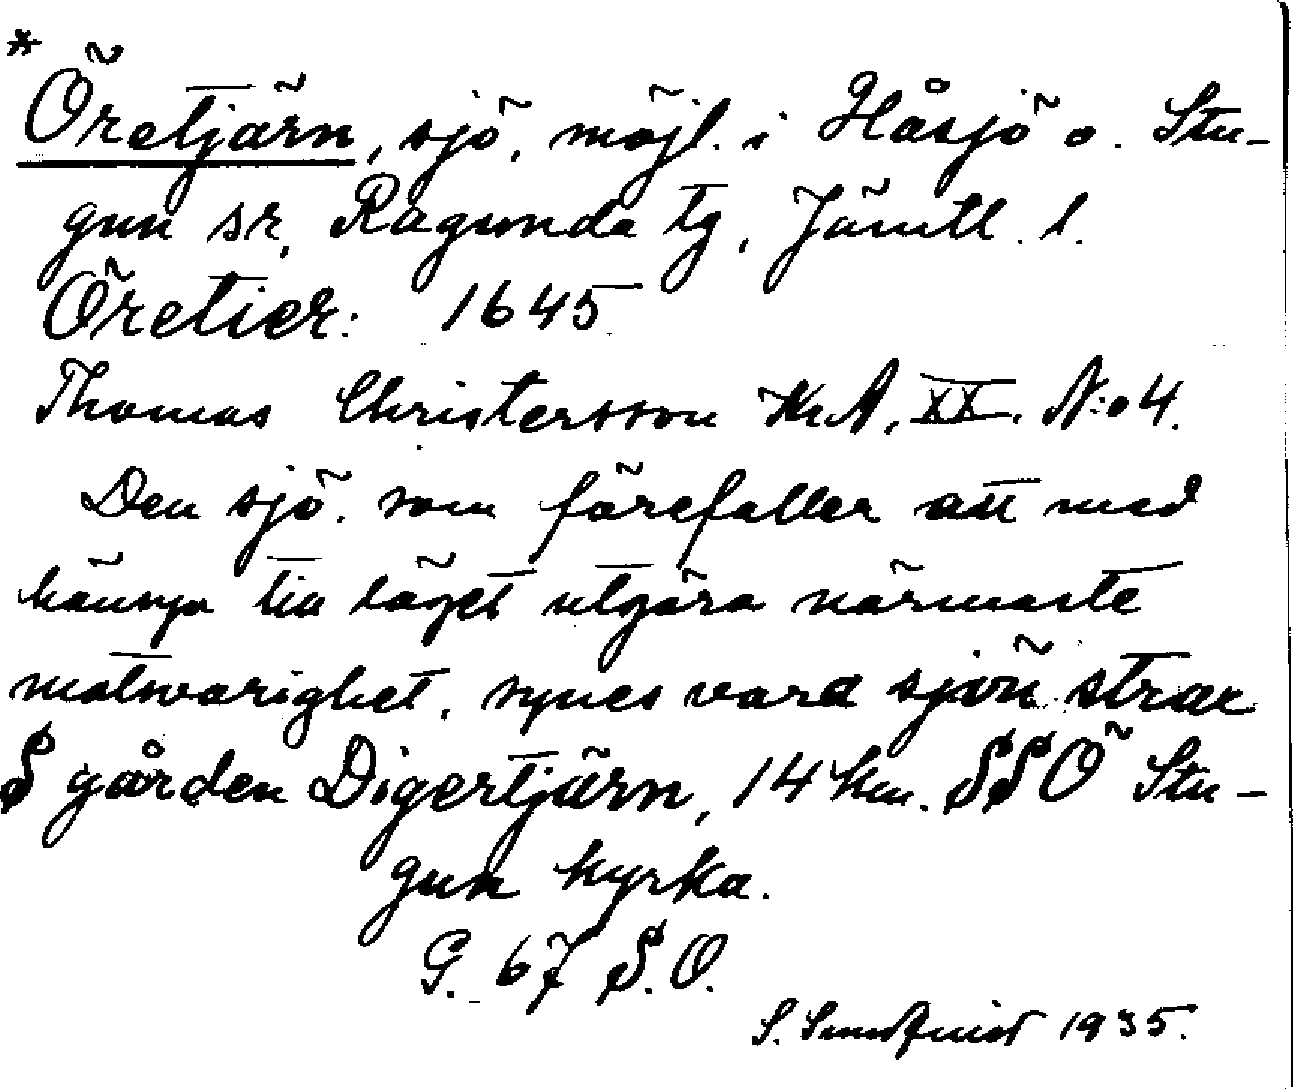 * Öretjärn, sjö, möjl. i Håsjö o. Stu-
gun sr, Ragunda tg, Jämtl. l.
Öretier: 1645
Thomas Christersson KrA, XX. N:o 4.
Den sjö, som förefaller att med
hänsyn till läget utgöra närmaste
motsvarighet, synes vara sjön strax
S gården Digertjärn, 14 km. SSÖ Stu-
gun kyrka.
G. 67 S.O.
S. Sundquist 1935.